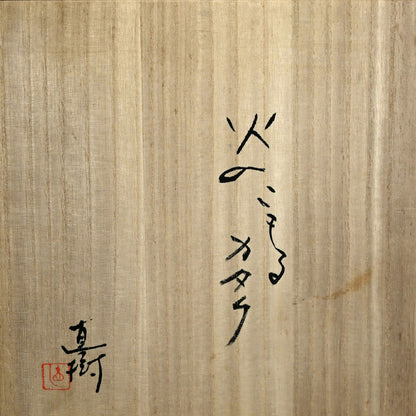 火のこもるカタチ
直樹